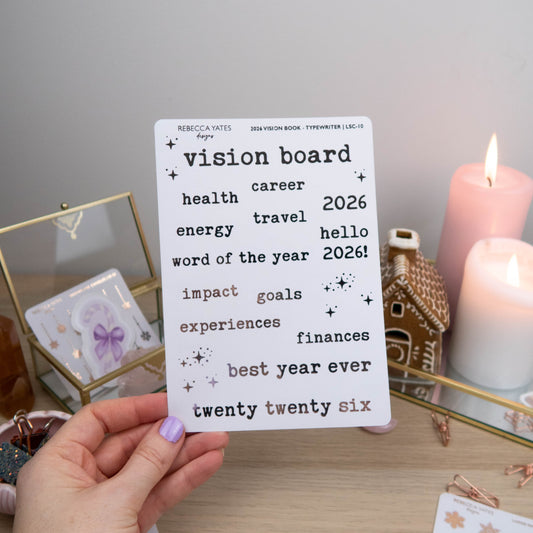 REBECCA YATES
designs
2026 VISION BOOK - TYPEWRITER | LSC-10
vision board
health
career
2026
energy
travel
hello
2026!
word of the year
impact
goals
experiences
finances
best year ever
twenty twenty six
REBECCA YATES
designs